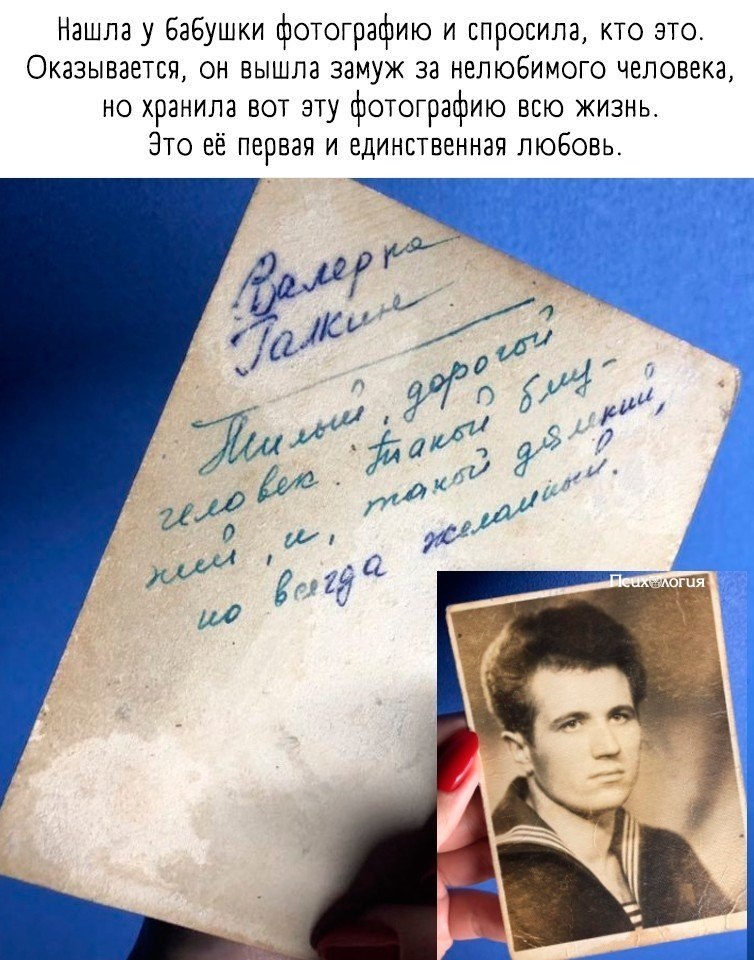 Нашла у бабушки фотографию и спросила, кто это.
Оказывается, он вышла замуж за нелюбимого человека,
но хранила вот эту фотографию всю жизнь.
Это её первая и единственная любовь.
Валерка
Галкин
Милый, дорогой
человек. Такой бли-
жий, и, такой далёкий,
но всегда желанный.
Психология